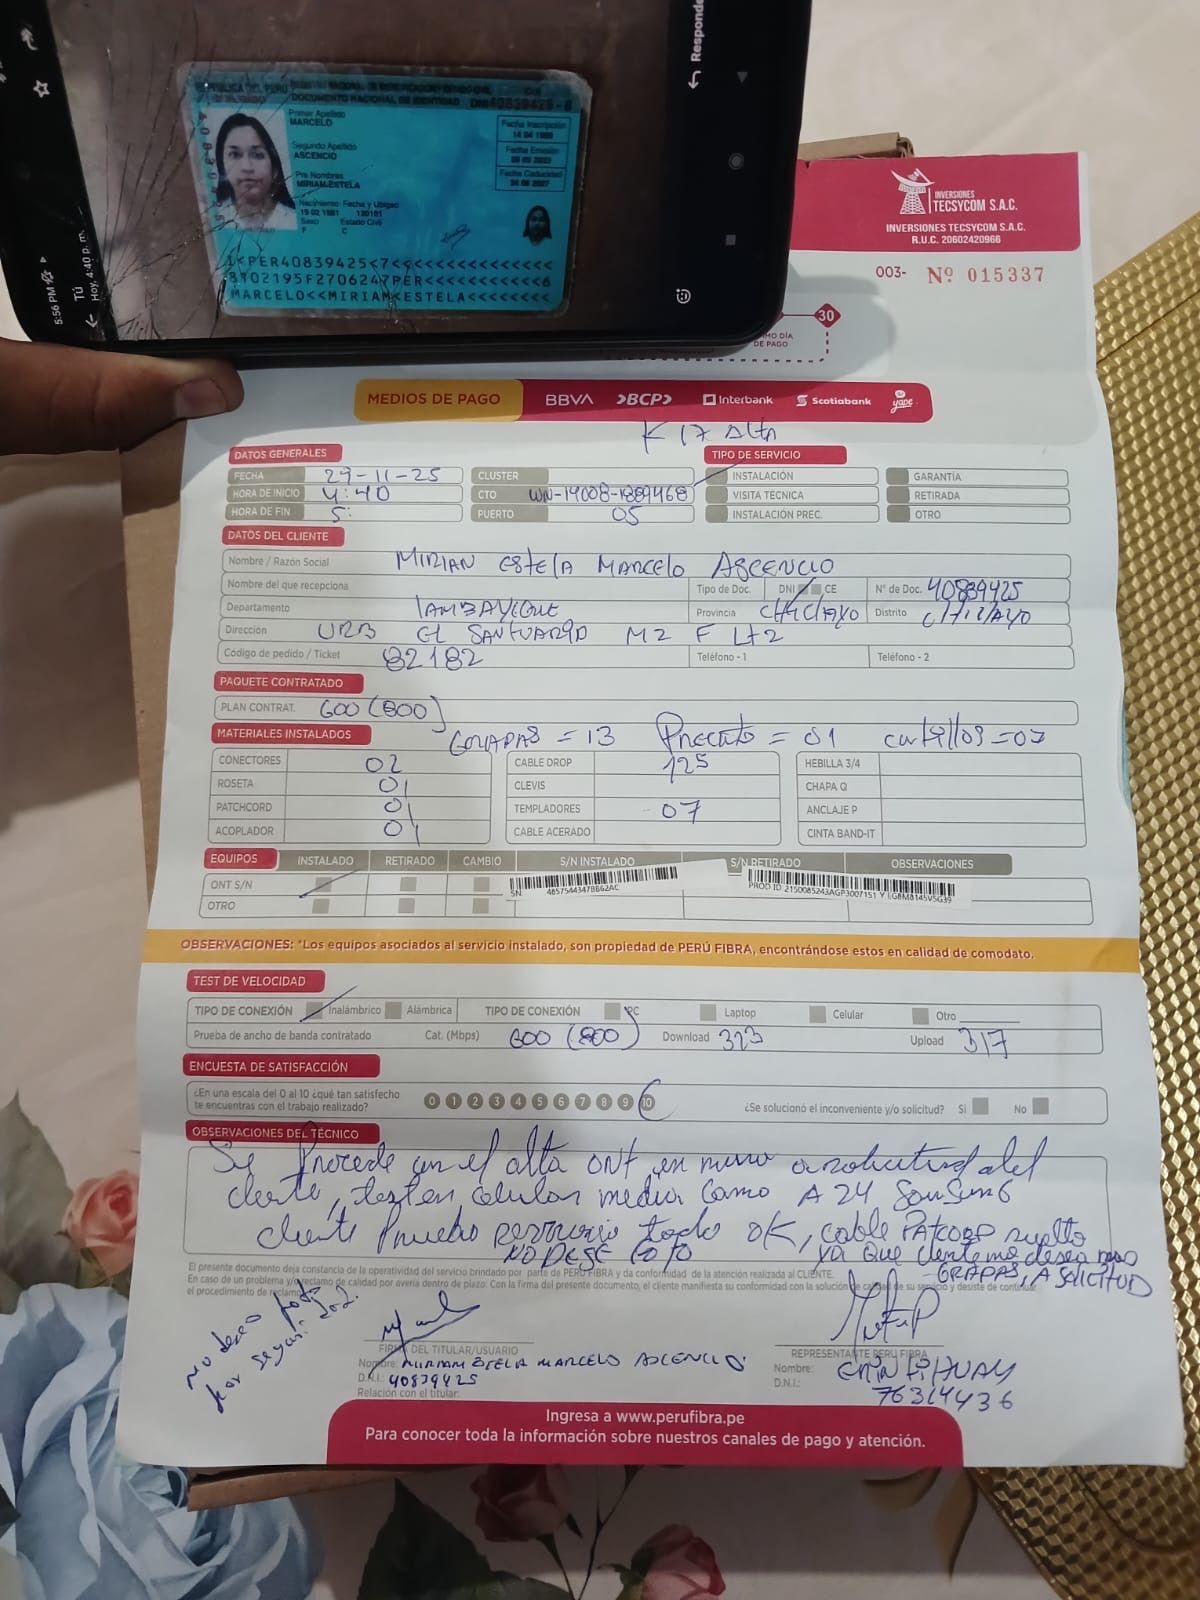 Responde
5:56 PM
Tú
Hoy, 4:40 p. m.
REPÚBLICA DEL PERÚ
DOCUMENTO NACIONAL DE IDENTIDAD DNI 40839425 - 6
Primer Apellido
MARCELO
Segundo Apellido
ASCENCIO
Pre Nombres
MIRIAM ESTELA
Nacimiento: Fecha y Ubigeo
19 02 1981 120101
Sexo Estado Civil
F C
Fecha Inscripción
Fecha Emisión
Fecha Caducidad
24 06 2027
I<PER40839425<7<<<<<<<<<<<<<<<
8102195F2706247PER<<<<<<<<<<<6
MARCELO<<MIRIAM<ESTELA<<<<<<<<
INVERSIONES
TECSYCOM S.A.C.
INVERSIONES TECSYCOM S.A.C.
R.U.C. 20602420966
003- Nº 015337
30
DÍA
DE PAGO
MEDIOS DE PAGO BBVA BCP Interbank Scotiabank yape
K 17 Alta
DATOS GENERALES TIPO DE SERVICIO
FECHA 29-11-25 CLUSTER INSTALACIÓN GARANTÍA
HORA DE INICIO 4:40 CTO VISITA TÉCNICA RETIRADA
HORA DE FIN 5: PUERTO 05 INSTALACIÓN PREC. OTRO
DATOS DEL CLIENTE
Nombre / Razón Social MIRIAN EStElA MARCElo ASCENCIO
Nombre del que recepciona Tipo de Doc. DNI CE N° de Doc. 40839425
Departamento lAMBAYEQUE Provincia CHICLAYO Distrito CHICLAYO
Dirección URB El SANTUARIO MZ F Lt 2
Código de pedido / Ticket 82182 Teléfono - 1 Teléfono - 2
PAQUETE CONTRATADO
PLAN CONTRAT. 600 (800)
MATERIALES INSTALADOS GRAPAS = 13 Precinto = 01
CONECTORES 02 CABLE DROP 125 HEBILLA 3/4
ROSETA 01 CLEVIS CHAPA Q
PATCHCORD 01 TEMPLADORES 07 ANCLAJE P
ACOPLADOR 01 CABLE ACERADO CINTA BAND-IT
EQUIPOS INSTALADO RETIRADO CAMBIO S/N INSTALADO S/N RETIRADO OBSERVACIONES
ONT S/N SN: 48575443478B62AC PROD ID: 2150085243AGP3007151 Y EG8M8145V5G39
OTRO
OBSERVACIONES: *Los equipos asociados al servicio instalado, son propiedad de PERÚ FIBRA, encontrándose estos en calidad de comodato.
TEST DE VELOCIDAD
TIPO DE CONEXIÓN Inalámbrico Alámbrica TIPO DE CONEXIÓN PC Laptop Celular Otro
Prueba de ancho de banda contratado Cat. (Mbps) 600 (800) Download 323 Upload 317
ENCUESTA DE SATISFACCIÓN
¿En una escala del 0 al 10 ¿qué tan satisfecho
te encuentras con el trabajo realizado? 0 1 2 3 4 5 6 7 8 9 10 ¿Se solucionó el inconveniente y/o solicitud? Si No
OBSERVACIONES DEL TÉCNICO
Se Procede con el alta ONT en muro a solicitud del
cliente, test en celular media Gama A 24 SamSung
cliente Prueba servicio todo OK, cable PATCORD suelto
NO DESE FOTO ya que cliente no desea mas
GRAPAS, A SOLICITUD
El presente documento deja constancia de la operatividad del servicio brindado por parte de PERÚ FIBRA y da conformidad de la atención realizada al CLIENTE.
En caso de un problema y/o reclamo de calidad por avería dentro de plazo: Con la firma del presente documento, el cliente manifiesta su conformidad con la solución de calidad de su servicio y desiste de continuar
el procedimiento de reclamo.
no deseo foto
por seguridad.
FIRMA DEL TITULAR/USUARIO REPRESENTANTE PERU FIBRA
Nombre: MIRIAM ESTELA MARCELO ASCENCIO Nombre:
D.N.I.: 40839425 D.N.I.: 76314436
Relación con el titular:
Ingresa a www.perufibra.pe
Para conocer toda la información sobre nuestros canales de pago y atención.